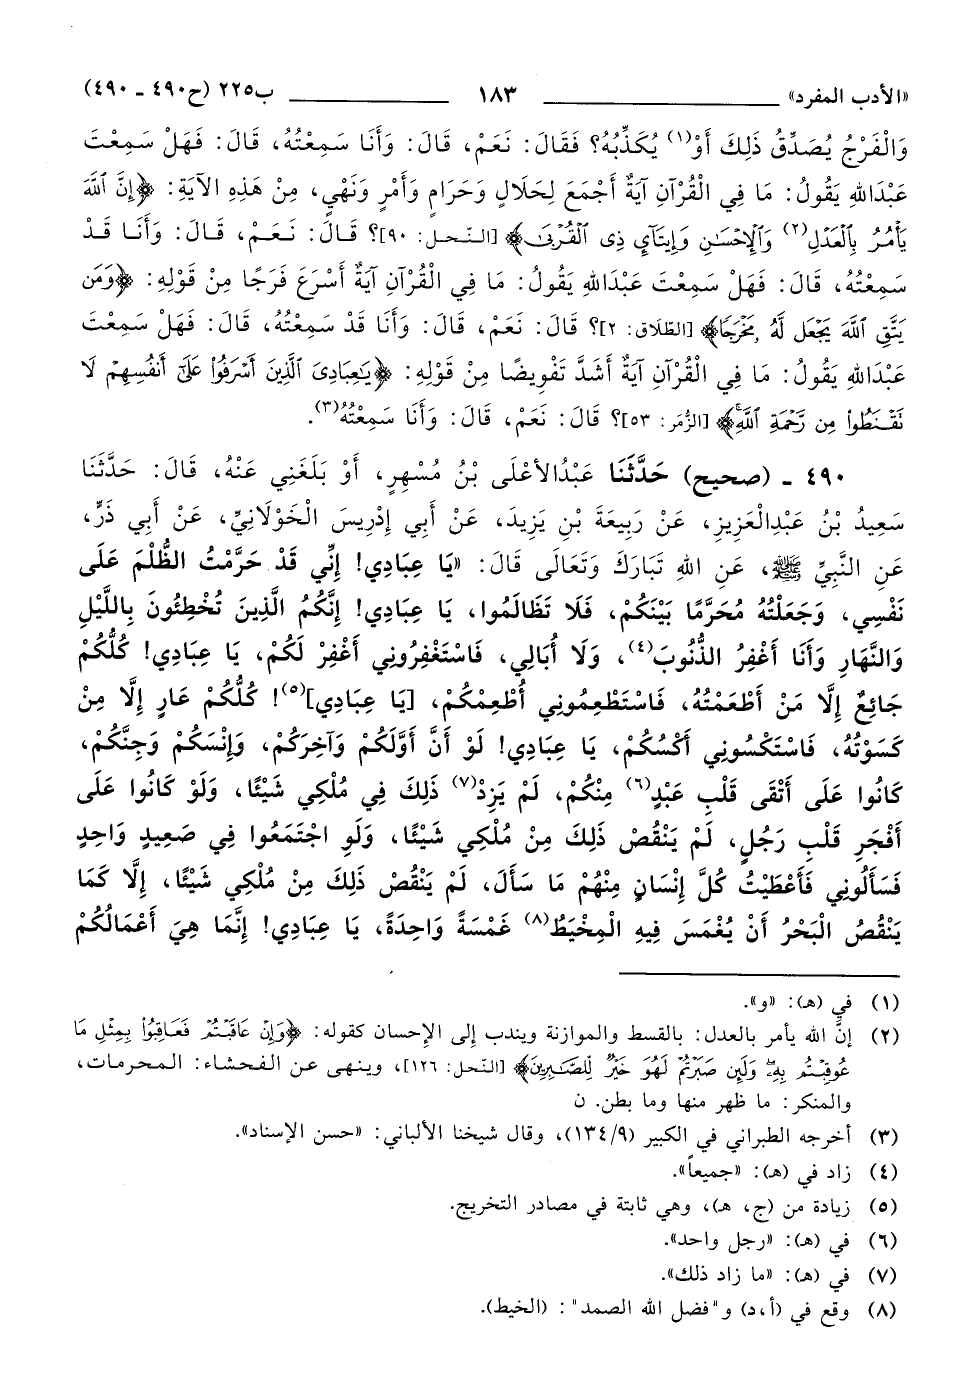 «الأدب المفرد» ١٨٣ ب٢٢٥ (ح٤٩٠ ـ ٤٩٠)
وَالْفَرْجُ يُصَدِّقُ ذَلِكَ أَوْ(١) يُكَذِّبُهُ؟ فَقَالَ: نَعَمْ، قَالَ: وَأَنَا سَمِعْتُهُ، قَالَ: فَهَلْ سَمِعْتَ
عَبْدَاللهِ يَقُولُ: مَا فِي الْقُرْآنِ آيَةٌ أَجْمَعَ لِحَلَالٍ وَحَرَامٍ وَأَمْرٍ وَنَهْيٍ، مِنْ هَذِهِ الآيَةِ: ﴿إِنَّ اللَّهَ
يَأْمُرُ بِالْعَدْلِ(٢) وَالْإِحْسَانِ وَإِيتَآئِ ذِى الْقُرْبَى﴾ [النَّحل: ٩٠]؟ قَالَ: نَعَمْ، قَالَ: وَأَنَا قَدْ
سَمِعْتُهُ، قَالَ: فَهَلْ سَمِعْتَ عَبْدَاللهِ يَقُولُ: مَا فِي الْقُرْآنِ آيَةٌ أَسْرَعَ فَرَجًا مِنْ قَوْلِهِ: ﴿وَمَن
يَتَّقِ اللَّهَ يَجْعَل لَّهُ مَخْرَجًا﴾ [الطّلاق: ٢]؟ قَالَ: نَعَمْ، قَالَ: وَأَنَا قَدْ سَمِعْتُهُ، قَالَ: فَهَلْ سَمِعْتَ
عَبْدَاللهِ يَقُولُ: مَا فِي الْقُرْآنِ آيَةٌ أَشَدَّ تَفْوِيضًا مِنْ قَوْلِهِ: ﴿يَاعِبَادِىَ الَّذِينَ أَسْرَفُوا عَلَى أَنفُسِهِمْ لَا
تَقْنَطُوا مِن رَّحْمَةِ اللَّهِ﴾ [الزُّمَر: ٥٣]؟ قَالَ: نَعَمْ، قَالَ: وَأَنَا سَمِعْتُهُ(٣).
٤٩٠ ـ (صحيح) حَدَّثَنَا عَبْدُالأَعْلَى بْنُ مُسْهِرٍ، أَوْ بَلَغَنِي عَنْهُ، قَالَ: حَدَّثَنَا
سَعِيدُ بْنُ عَبْدِالْعَزِيزِ، عَنْ رَبِيعَةَ بْنِ يَزِيدَ، عَنْ أَبِي إِدْرِيسَ الْخَوْلَانِيِّ، عَنْ أَبِي ذَرٍّ،
عَنِ النَّبِيِّ ﷺ، عَنِ اللهِ تَبَارَكَ وَتَعَالَى قَالَ: «يَا عِبَادِي! إِنِّي قَدْ حَرَّمْتُ الظُّلْمَ عَلَى
نَفْسِي، وَجَعَلْتُهُ مُحَرَّمًا بَيْنَكُمْ، فَلَا تَظَالَمُوا، يَا عِبَادِي! إِنَّكُمُ الَّذِينَ تُخْطِئُونَ بِاللَّيْلِ
وَالنَّهَارِ وَأَنَا أَغْفِرُ الذُّنُوبَ(٤)، وَلَا أُبَالِي، فَاسْتَغْفِرُونِي أَغْفِرْ لَكُمْ، يَا عِبَادِي! كُلُّكُمْ
جَائِعٌ إِلَّا مَنْ أَطْعَمْتُهُ، فَاسْتَطْعِمُونِي أُطْعِمْكُمْ، [يَا عِبَادِي](٥)! كُلُّكُمْ عَارٍ إِلَّا مِنْ
كَسَوْتُهُ، فَاسْتَكْسُونِي أَكْسُكُمْ، يَا عِبَادِي! لَوْ أَنَّ أَوَّلَكُمْ وَآخِرَكُمْ، وَإِنْسَكُمْ وَجِنَّكُمْ،
كَانُوا عَلَى أَتْقَى قَلْبِ عَبْدٍ(٦) مِنْكُمْ، لَمْ يَزِدْ(٧) ذَلِكَ فِي مُلْكِي شَيْئًا، وَلَوْ كَانُوا عَلَى
أَفْجَرِ قَلْبِ رَجُلٍ، لَمْ يَنْقُصْ ذَلِكَ مِنْ مُلْكِي شَيْئًا، وَلَوِ اجْتَمَعُوا فِي صَعِيدٍ وَاحِدٍ
فَسَأَلُونِي فَأَعْطَيْتُ كُلَّ إِنْسَانٍ مِنْهُمْ مَا سَأَلَ، لَمْ يَنْقُصْ ذَلِكَ مِنْ مُلْكِي شَيْئًا، إِلَّا كَمَا
يَنْقُصُ الْبَحْرُ أَنْ يُغْمَسَ فِيهِ الْمِخْيَطُ(٨) غَمْسَةً وَاحِدَةً، يَا عِبَادِي! إِنَّمَا هِيَ أَعْمَالُكُمْ
(١) في (هـ): «و».
(٢) إنَّ الله يأمر بالعدل: بالقسط والموازنة ويندب إلى الإحسان كقوله: ﴿وَإِنْ عَاقَبْتُمْ فَعَاقِبُوا بِمِثْلِ مَا
عُوقِبْتُم بِهِ وَلَئِن صَبَرْتُمْ لَهُوَ خَيْرٌ لِّلصَّابِرِينَ﴾ [النَّحل: ١٢٦]، وينهى عن الفحشاء: المحرمات،
والمنكر: ما ظهر منها وما بطن. ن
(٣) أخرجه الطبراني في الكبير (١٣٤/٩)، وقال شيخنا الألباني: «حسن الإسناد».
(٤) زاد في (هـ): «جميعاً».
(٥) زيادة من (ج، هـ)، وهي ثابتة في مصادر التخريج.
(٦) في (هـ): «رجل واحد».
(٧) في (هـ): «ما زاد ذلك».
(٨) وقع في (أ،د) و"فضل الله الصمد": (الخيط).